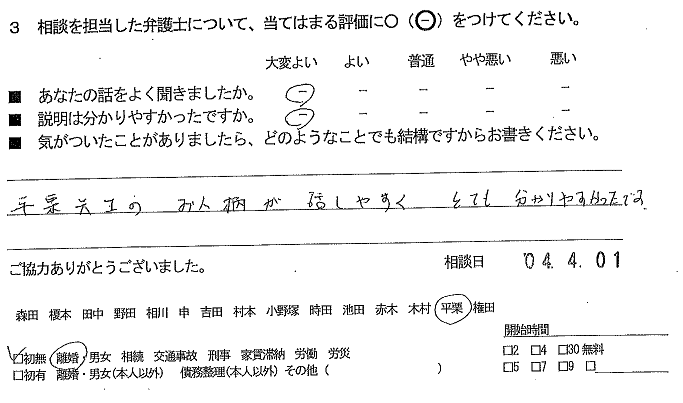 3 相談を担当した弁護士について、当てはまる評価に○(⊖)をつけてください。
大変よい よい 普通 やや悪い 悪い
■ あなたの話をよく聞きましたか。 − − − − −
■ 説明は分かりやすかったですか。 − − − − −
■ 気がついたことがありましたら、どのようなことでも結構ですからお書きください。
平栗先生の お人柄が 話しやすく とても 分かりやすかったです
ご協力ありがとうございました。 相談日 '04.4.01
森田 榎本 田中 野田 相川 申 吉田 村本 小野塚 時田 池田 赤木 木村 平栗 権田
開始時間
□初無 離婚・男女 相続 交通事故 刑事 家賃滞納 労働 労災 □2 □4 □30 無料
□初有 離婚・男女(本人以外) 債務整理(本人以外) その他( ) □5 □7 □9 □